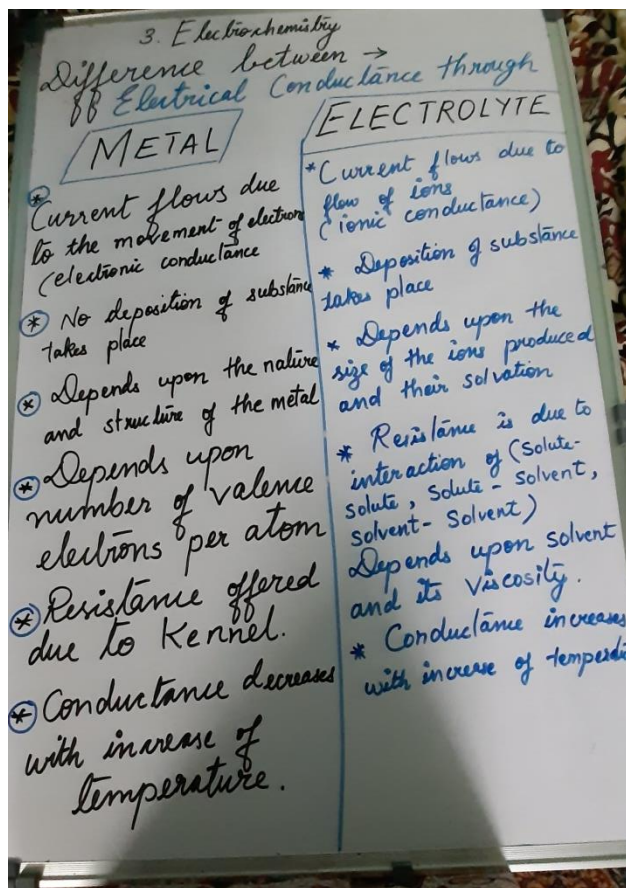 3. Electrochemistry
Difference between →
Electrical Conductance through
METAL
* Current flows due
to the movement of electrons
(electronic conductance
* No deposition of substance
takes place
* Depends upon the nature
and structure of the metal
* Depends upon
number of valence
electrons per atom
* Resistance offered
due to Kennel.
* Conductance decreases
with increase of
temperature.
ELECTROLYTE
* Current flows due to
flow of ions
(ionic conductance)
* Deposition of substance
takes place
* Depends upon the
size of the ions produced
and their solvation
* Resistance is due to
interaction of (Solute-
solute, Solute - Solvent,
Solvent - Solvent)
Depends upon solvent
and its Viscosity.
* Conductance increases
with increase of